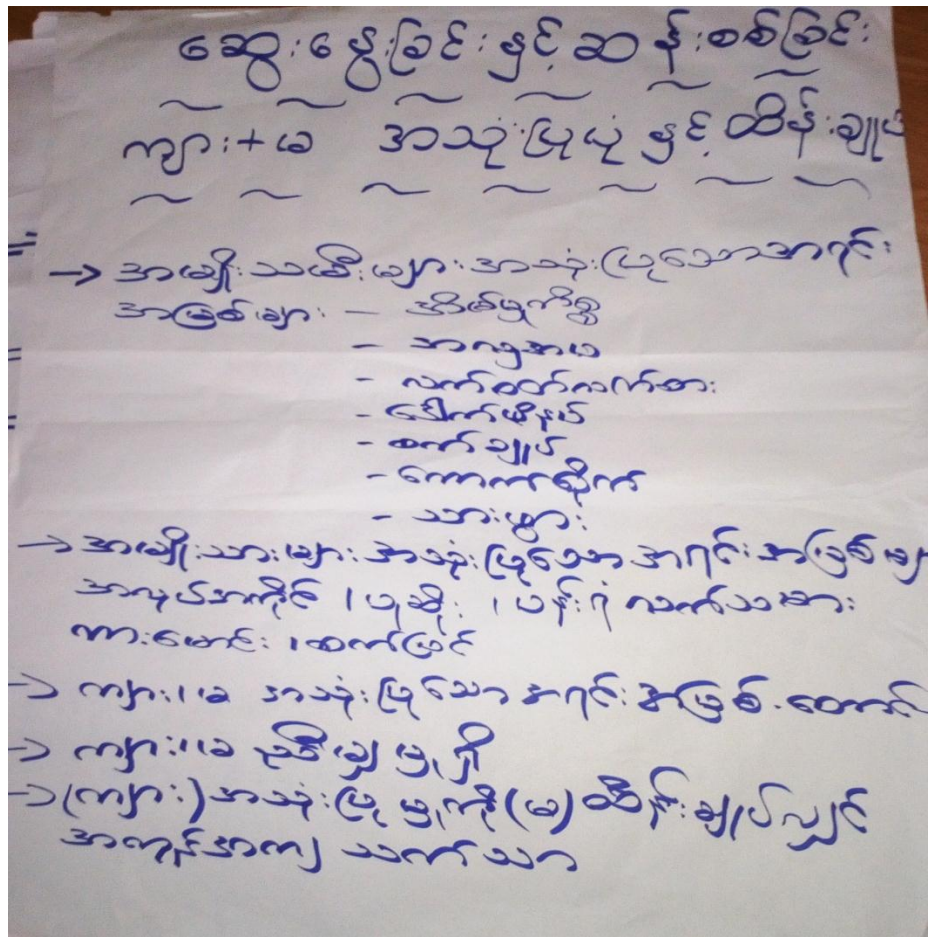 ဆွေးနွေးခြင်းနှင့်ဆန်းစစ်ခြင်း
ကျား+မ အသုံးပြုပုံနှင့်ထိန်းချုပ်
→ အမျိုးသမီးများအသုံးပြုသောအရင်း
အမြစ်များ - အိမ်မှုကိစ္စ
- အလှအပ
- လက်ဝတ်လက်စား
- ပေါက်ဖိနပ်
- စက်ချုပ်
- ကောက်စိုက်
- သားဖွား
→ အမျိုးသားများအသုံးပြုသော အရင်းအမြစ်များ
အလုပ်အကိုင် ၊ ပုဆိုး ၊ ပန်းရံ လက်သမား
ကားမောင်း ၊ စက်ပြင်
→ ကျား၊မ အသုံးပြုသော အရင်းအမြစ် - တောင်
→ ကျား၊မ ညီမျှမှုရှိ
→ (ကျား) အသုံးပြုမှုကို (မ) ထိန်းချုပ်လျှင်
အကုန်အကျ သက်သာ